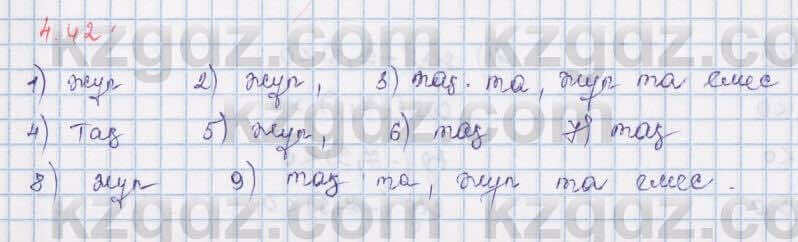 4.42
1) жұп 2) жұп, 3) тақ та, жұп та емес
4) Тақ 5) жұп, 6) тақ 7) тақ
8) жұп 9) тақ та, жұп та емес.
kzgdz.com kzgdz.com
kzgdz.com kzgdz.com
kzgdz.com kzgdz.com